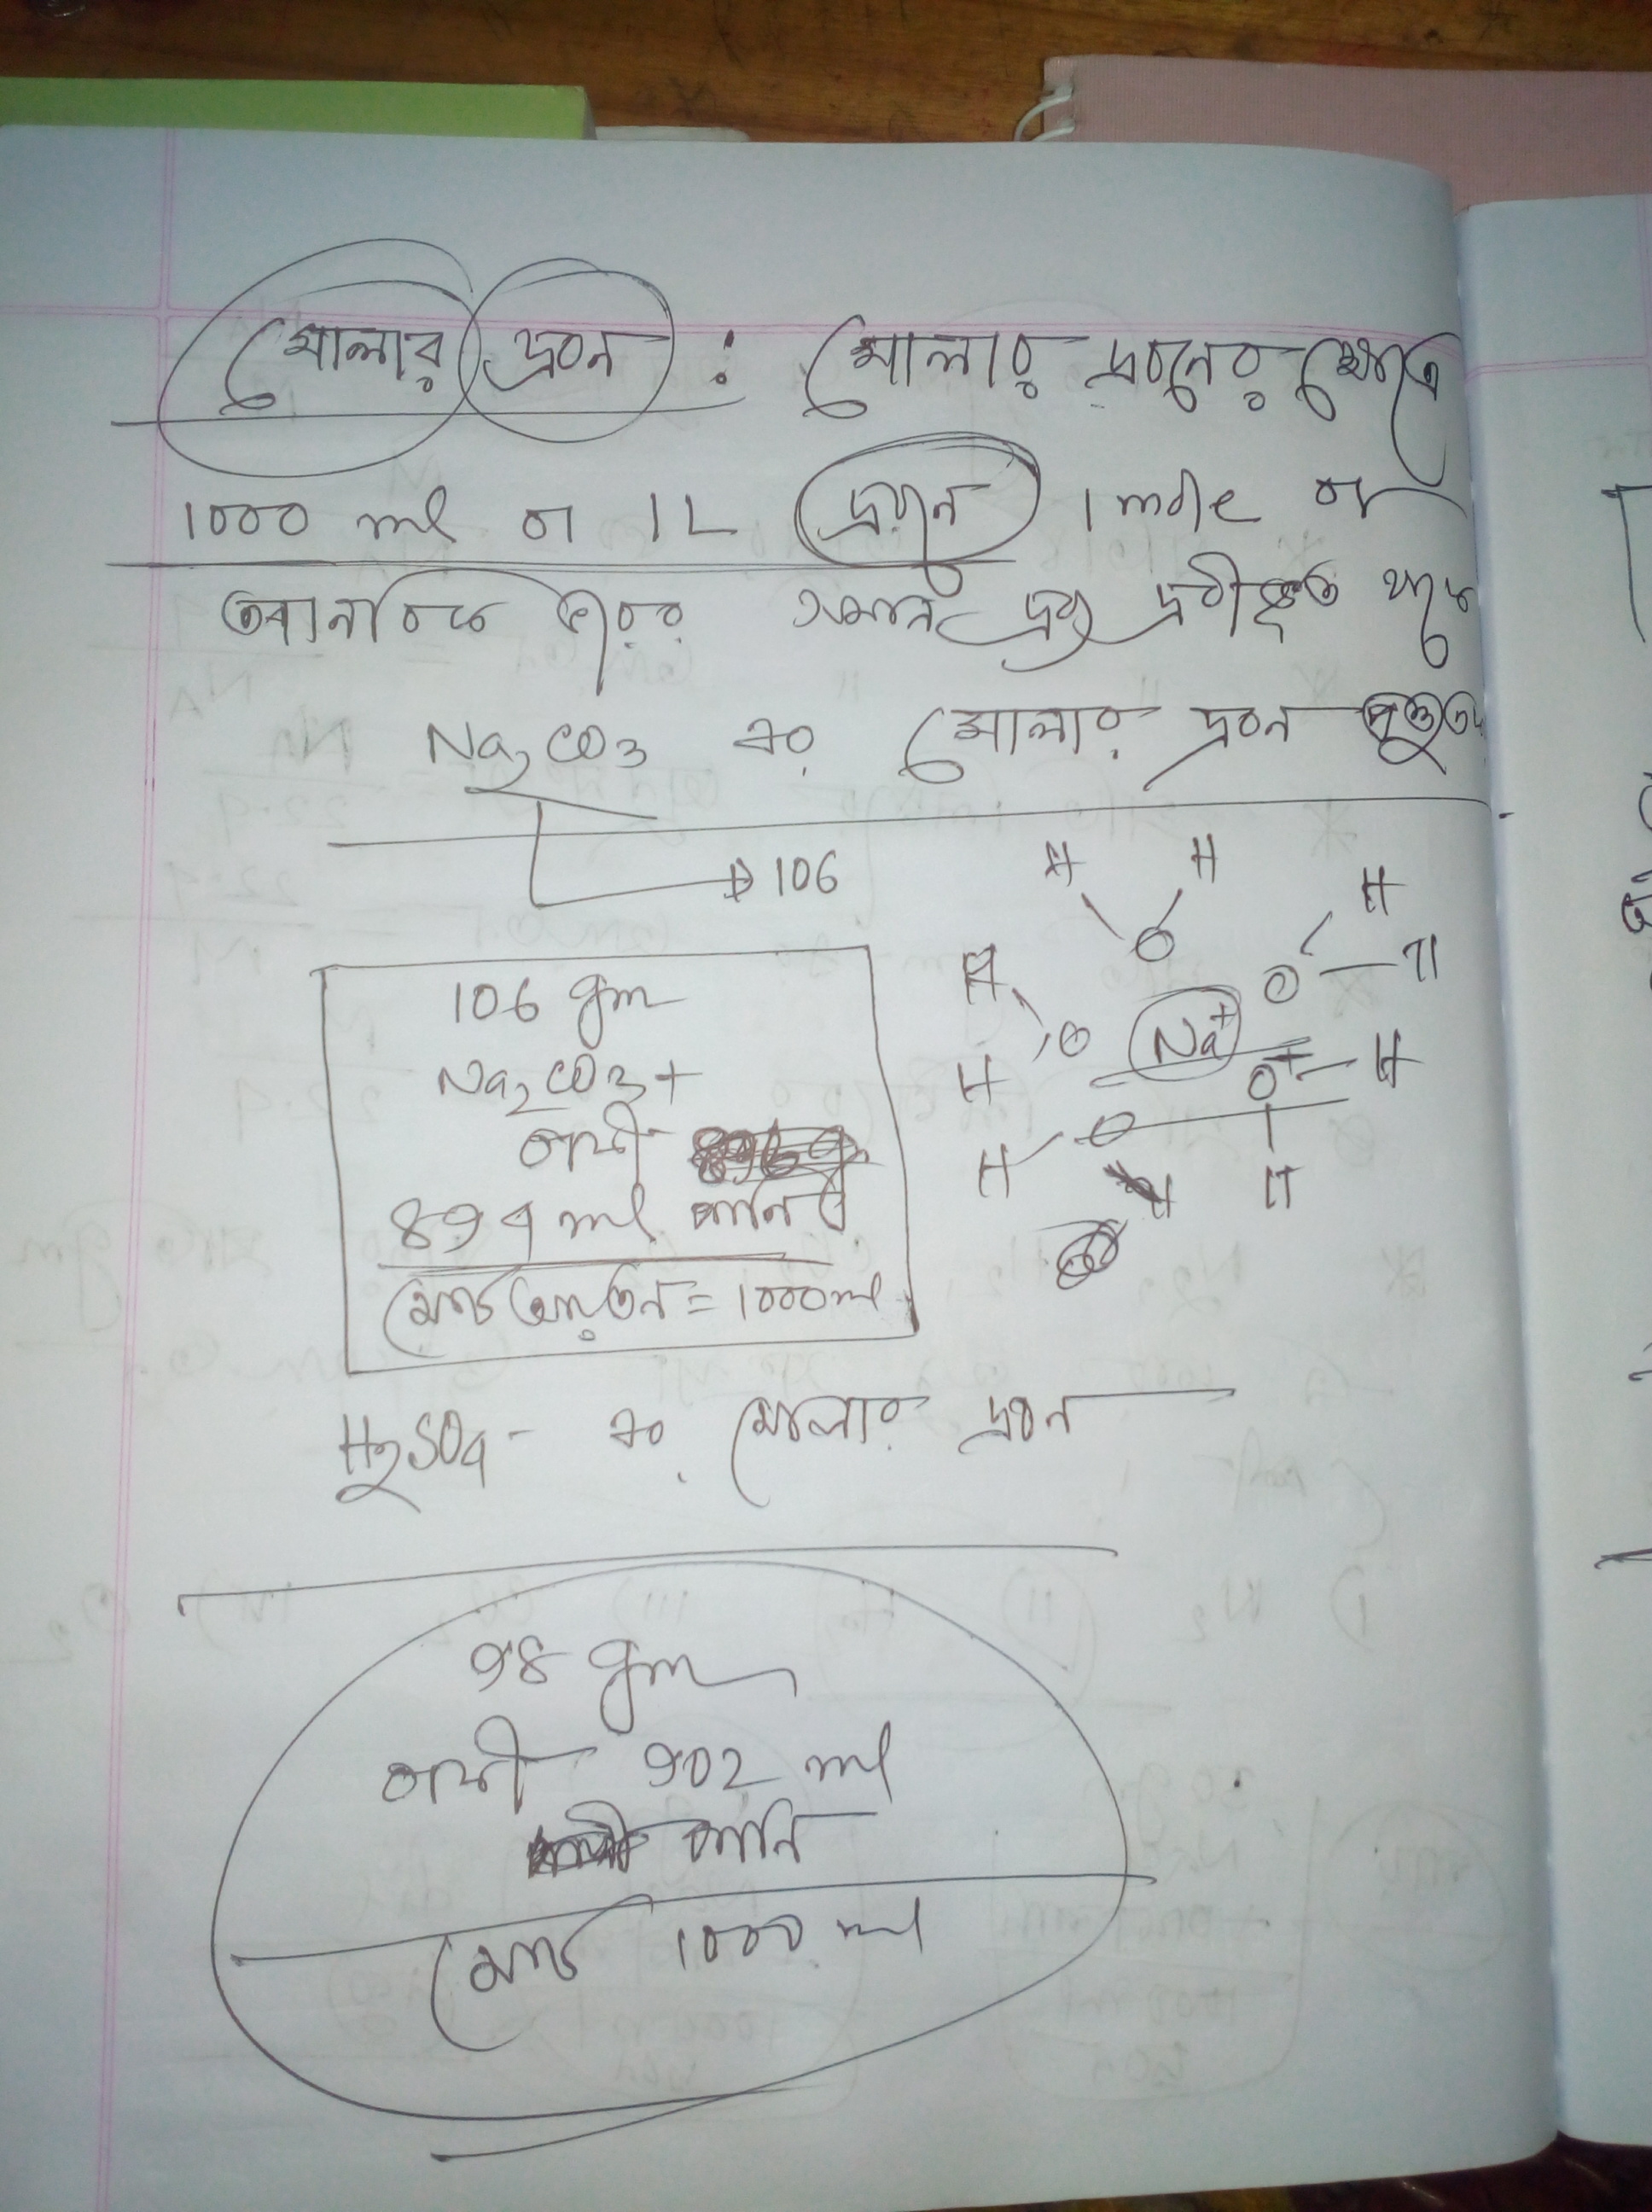 মোলার দ্রবন : মোলার দ্রবনের ক্ষেত্রে
1000 ml বা 1L দ্রবনে 1 mole বা
আনবিক ভরের সমান দ্রব্য দ্রবীভূত থাকে
Na2CO3 এর মোলার দ্রবন প্রস্তুত
106
106 gm
Na2CO3+
বাকী
894 ml পানি
মোট আয়তন = 1000ml
H H
H
H O O H
O Na+
H O+ H
H O
H H
H2SO4- এর মোলার দ্রবন
98 gm
বাকী 902 ml
পানি
মোট 1000 ml